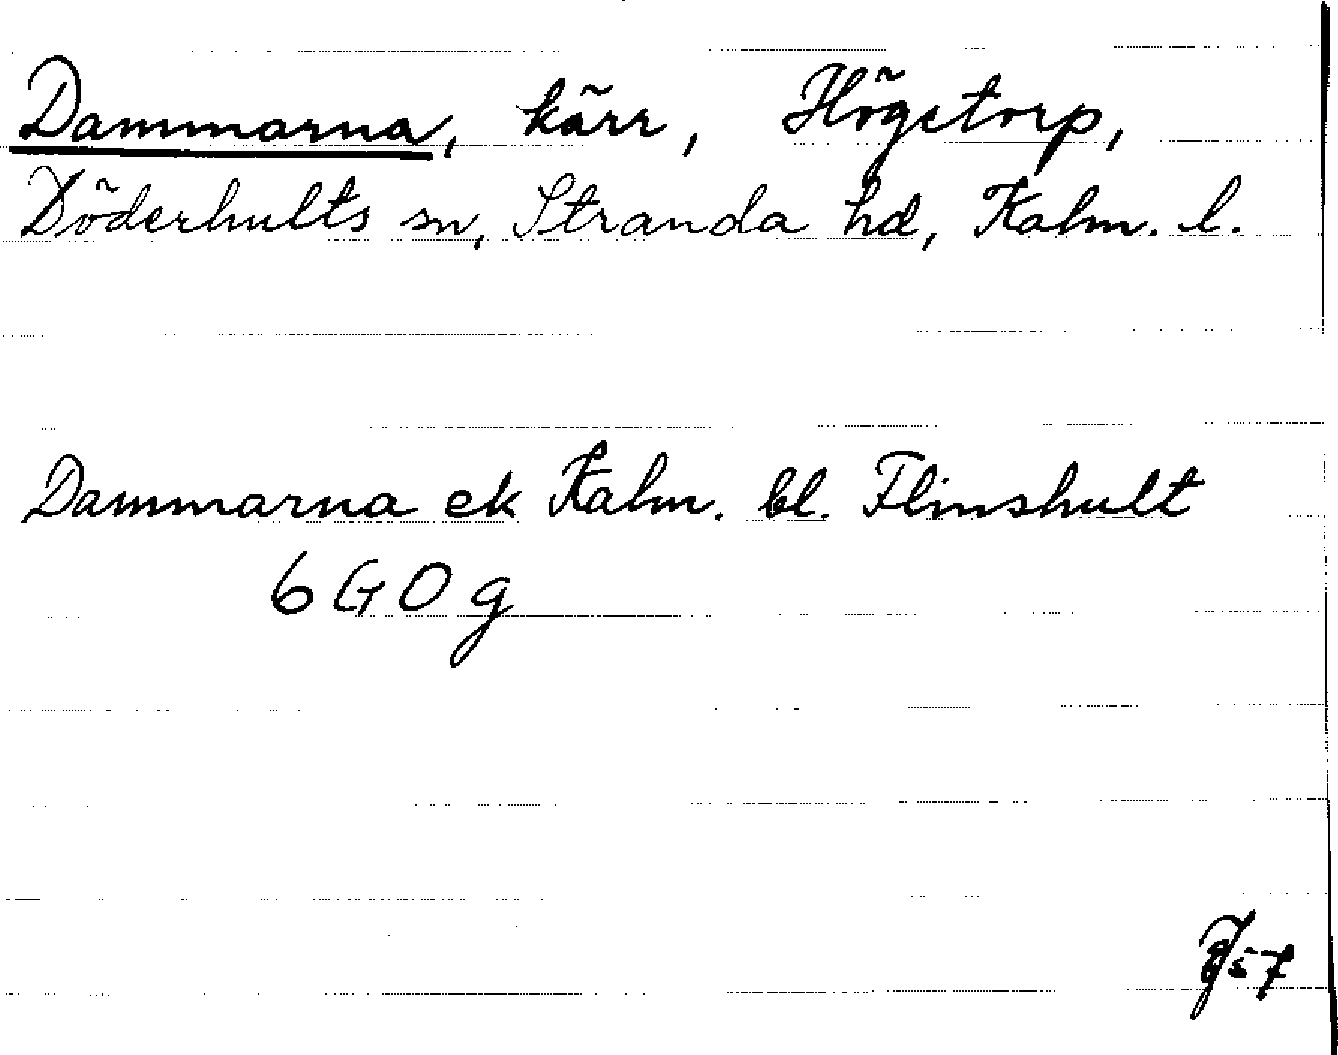 Dammarna, kärr, Högetorp,
Döderhults sn, Stranda hd, Kalm. l.
Dammarna ek Kalm. bl. Flinshult
6 G O g
57